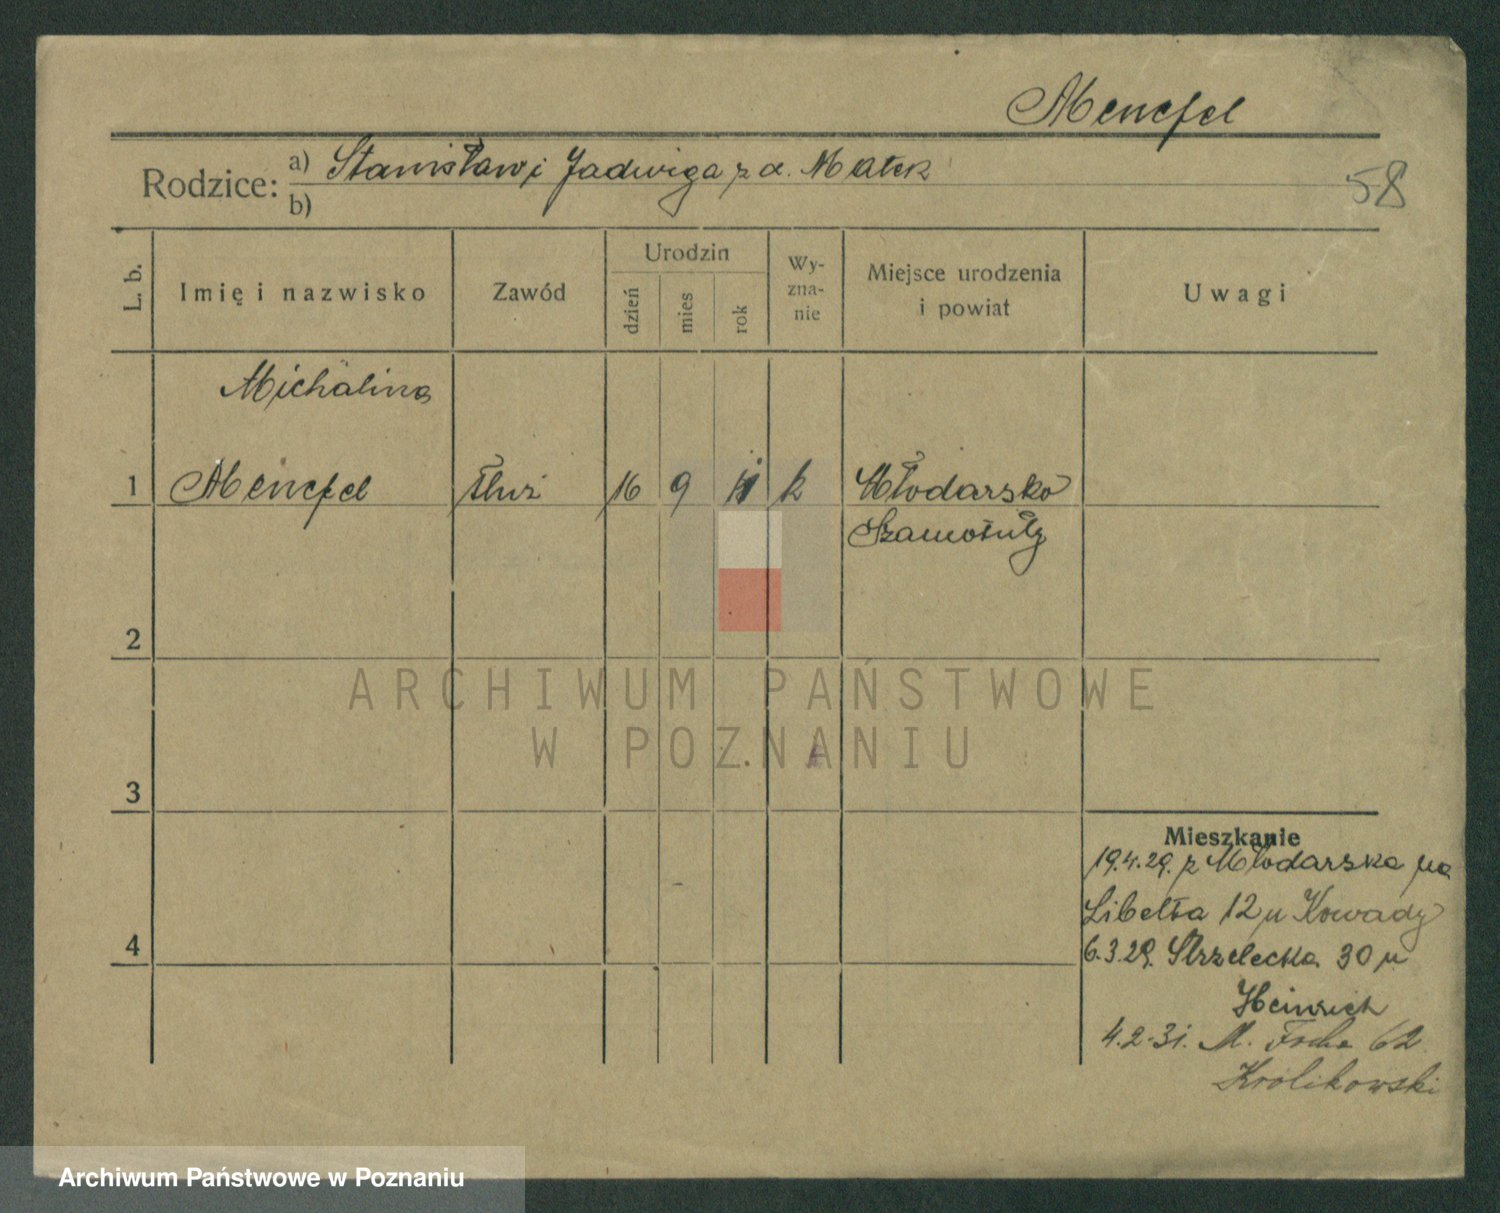 Menefel
Rodzice: a) Stanisław i Jadwiga z d. Małek
b)
58
L. b.
Imię i nazwisko
Zawód
Urodzin
dzień
mies
rok
Wy-
zna-
nie
Miejsce urodzenia
i powiat
Uwagi
Michalina
1 Menefel służ 16 9 11 k Młodarsko
Szamotuły
2
3
4
Mieszkanie
19.4.29. z Młodarska na
Libelta 12 u Kowady
6.3.29. Strzelecka 30 u
Heinrich
4.2.31. M. Focha 62
Krolikowski
ARCHIWUM PAŃSTWOWE
W POZNANIU
Archiwum Państwowe w Poznaniu